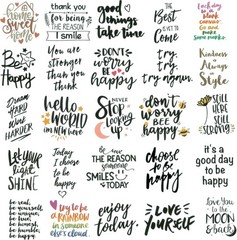 Home
Sweet
Home
thank you
for being
THE REASON
I smile
good
things
take time
The
Best
is yet
to be
Every day is
a blank
canvas
So go and
make some
marks
Be
Happy
You are
stronger
than you
think
DON'T
WORRY
BE
happy
try,
try,
try again.
Kindness
is
Always
in
Style
DREAM
HARD
Work
HARDER
hello
WORLD
I'M NEW HERE
NEVER
Stop
Looking
up
don't
worry
be
happy
STILL
HERE
STILL
STRONG
LET
YOUR
Light
SHINE
Today
I choose
to be
happy
BE
THE REASON
SOMEONE
SMILES
TODAY
choose
to be
happy
it's a
good day
to be
happy
try to be
a RAINBOW
IN Someone
else's cloud.
enjoy
today.
LOVE
YOURSELF
love you
to the
MOON
& back